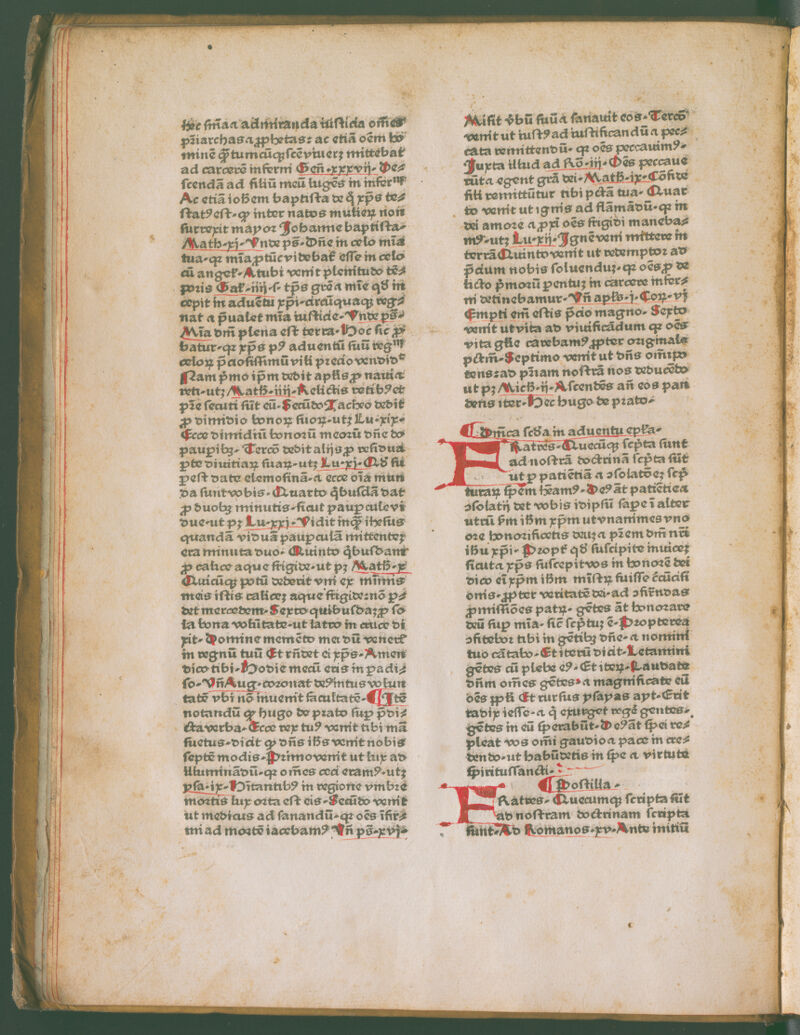 hec sm̄aa admiranda iusticia om̄es
pr̄iarchas a ꝓphetas: ac etiā oēm ho
minē qͣ̄tumcūqꝫ scē viuerꝫ mittebat̉
ad carcerē inferni Geñ·xxxvij· De⸗
scendā ad filiū meū lugēs in infernꝰ
Ac etiā ioh̄em baptistā de q̊ xp̄s te⸗
statꝰ est· ꝙ inter natos mulieꝝ non
surrexit mayor Johanne baptista·
Math·xj· Vnde ps̄· Dn̄e in celo mīa
tua· qꝛ mīa ꝓtūc videbat̉ esse in celo
cū angel̉· At ubi venit plenitudo tē⸗
poris Gal̉·iiij· s· tp̄s grē a mīe qd̊ in
cepit in aduētu xp̄i· draūquaqꝫ reg⸗
nat a p̄ualet mīa iusticie· Vnde ps̄·
Mīa dn̄i plena est terra· Hoc sic ꝓ
batur· qꝛ xp̄s pꝰ aduentū suū regnū
celoꝝ p̄ciosissimū vili precio vendidᵗ
Nam pͥmo ip̄m dedit apl̄is ꝓ naui a
reti· utꝫ Math·iiij· Relictis retibꝰ et
pr̄e secuti sūt eū· Secūdo Zacheo dedit
ꝓ dimidio bonoꝝ suoꝝ· utꝫ Lu·xix·
Ecce dimidiū bonorū meorū dn̄e do
paupibꝫ· Tercō dedit alijs ꝓ residua
ꝑte diuitiaꝝ suaꝝ· utꝫ Lu·xj· Qd̊ su
ꝑest date elemosinā· a ecce oīa mun
da sunt vobis· Quarto qͥbusdā dat
ꝓ duobꝫ minutis· sicut pauꝑcule vi
due· ut pꝫ Lu·xxj· Vidit inqͣꝫ ihesus
quandā viduā pauꝑculā mittentē
era minuta duo· Quinto qͥbusdam
ꝓ calice aque frigide· ut pꝫ Math·x·
Quicūqꝫ potū dederit vni ex mīmis
meis istis calicē aque frigide: nō ꝑ⸗
det mercedem· Sexto quibusdaꝫ ꝓ so
la bona volūtate· ut latro in cruce di
xit· Domine memēto mei dū veneris
in regnū tuū Et rn̄det ei xp̄s· Amen
dico tibi· Hodie mecū eris in padi⸗
so· Vn̄ Aug· coronat deꝰ intus volun
tatē vbi nō inuenit facultatē· Itē
notandū ꝙ hugo de prato sup p̄di⸗
cta verba· Ecce rex tuꝰ venit tibi mā
suetus· dicit ꝙ dn̄s ih̄s venit nobis
septē modis· Primo venit ut lux ad
illuminādū· qꝛ om̄es ceci eramꝰ· utꝫ
ysa·ix· Hitantibꝰ in regione vmbre
mortis lux orta est eis· Secūdo venit
ut medicus ad sanandū· qꝛ oēs īfir⸗
mi ad mortē iacebamꝰ Vn̄ ps̄·xvj·
Misit v̄bū suū a sanauit eos· Tercō
venit ut iustꝰ ad iustificandū a pec⸗
cata remittendū· qꝛ oēs peccauimꝰ·
Juxta illud ad Ro·iij· Oēs peccaue
rūt a egent grā dei· Math·ix· Cōfide
fili remittūtur tibi pctā tua· Quar
to venit ut ignis ad flāmādū· qꝛ in
dei amore a ꝓxi oēs frigidi maneba⸗
mꝰ· utꝫ Lu·xij· Ignē veni mittere in
terrā Quinto venit ut redemptor ad
p̄dum nobis soluenduꝫ· qꝛ oēs ꝓ de
licto pͥmorū pentuꝫ in carcere infer⸗
ni detinebamur· Vn̄ apl̄s·j·Cor·vj
Empti em̄ estis p̄cio magno· Sexto
venit ut vita ad viuificādum qꝛ oēs
vita gl̄ie carebamꝰ ꝓpter originale
pctm̄· Septimo venit ut dn̄s om̄ipo
tens: ad pr̄iam nostrā nos deducēdo
ut pꝫ Mich·ij· Ascendēs an̄ eos pan
dens iter· Hec hugo de prato·
Dn̄ica scd̄a in aduentu epl̄a·
FRatres· Quecūqꝫ sc̉pta sunt
ad nostrā doctrinā sc̉pta sūt
ut ꝑ patiētiā a ↄsolatōeꝫ sc̉p
turaꝝ spēm hēamꝰ· Deꝰ āt patiētie a
ↄsolatōis det vobis idipsū sape ī alter
utrū scd̄m ih̄m xp̄m ut vnanimes vno
ore honorificetis deuꝫ a pr̄em dn̄i nr̄i
ih̄u xp̄i· Propt̉ qd̊ suscipite inuiceꝫ
sicut a xp̄s suscepit vos in honorē dei
dico ei xp̄m ih̄m mīstꝝ fuisse c̄cūcisi
onis· ꝓpter veritatē dei· ad ↄfirmādas
ꝓmissiōes patꝝ· gētes āt honorare
deū sup mīa· sic̄ sc̉ptuꝫ ē· Propterea
ↄfitebor tibi in gētibꝫ dn̄e· a nomini
tuo cātabo· Et iterū dicit· Letamini
gētes cū plebe eꝰ· Et iteꝝ· Laudate
dn̄m om̄es gētes· a magnificate eū
oēs ꝓpl̉i Et rursus ysayas ayt· Erit
radix iesse· a q̇ exurget regē gentes·
gētes in eū sperabūt· Deꝰ āt spei re⸗
pleat vos om̄i gaudio a pace in cre⸗
dendo· ut habūdetis in spe a virtute
spiritussancti·
Postilla·
FRatres· Quecumqꝫ scripta sūt
ad nostram doctrinam scripta
sunt· Ad Romanos·xv· Ante initiū